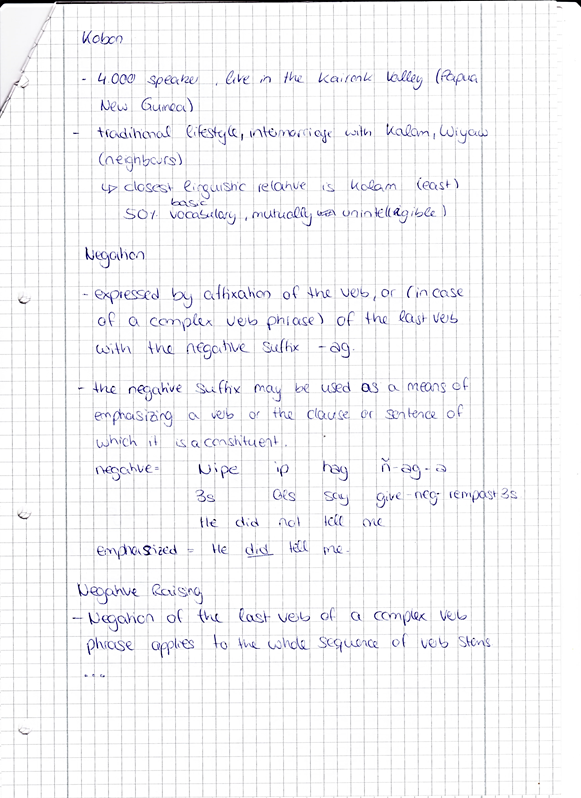 Kobon
- 4.000 speaker, live in the Kaironk Valley (Papua
New Guinea)
- traditional lifestyle, intermarriage with Kalam, Wiyaw
(neighbours)
↳ closest linguistic relative is Kalam (east)
basic
50% vocabulary, mutually unintelligible)
Negation
- expressed by affixation of the verb, or (in case
of a complex verb phrase) of the last verb
with the negative suffix -ag.
- the negative suffix may be used as a means of
emphasizing a verb or the clause or sentence of
which it is a constituent.
negative = Nipe ip hag ñ-ag-a
3s say give-neg-rempast3s
He did not tell me
emphasized = He did tell me.
Negative Raising
- Negation of the last verb of a complex verb
phrase applies to the whole sequence of verb stems
...